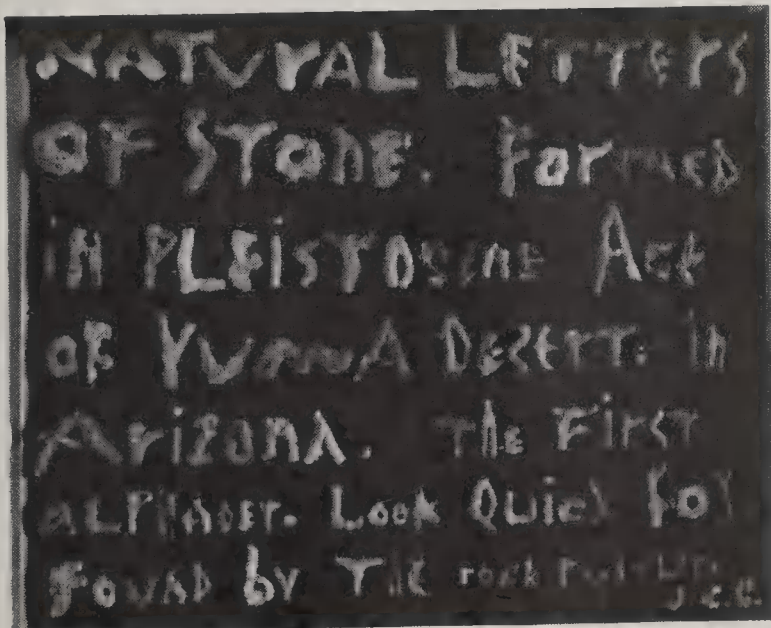 NATUrAL LETTErS
OF STONE. Formed
in PLEisTOcene Age
of YumnA DeserT. in
ArizonA. The First
aLPHABET. Look Quick
Found by The rock
J.C.G.